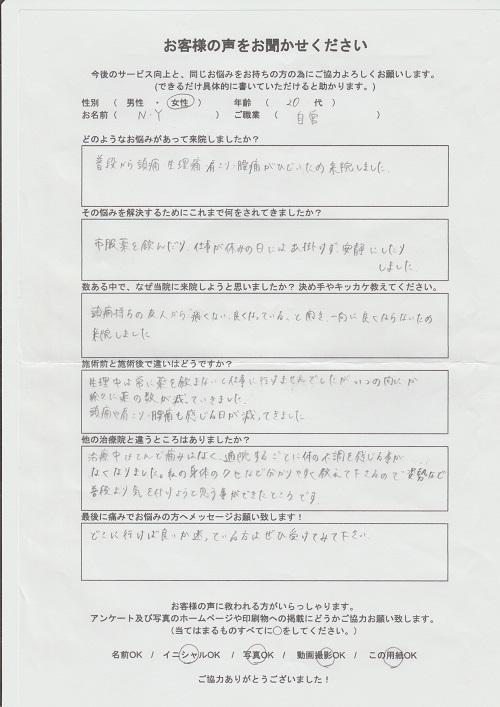 お客様の声をお聞かせください
今後のサービス向上と、同じお悩みをお持ちの方の為にご協力よろしくお願いします。
(できるだけ具体的に書いていただけると助かります。)
性別 ( 男性 ・ 女性 ) 年齢 ( 20 代 )
お名前 ( N・Y ) ご職業 ( 自営 )
どのようなお悩みがあって来院しましたか?
普段から頭痛 生理痛 肩こり・腰痛がひどいため来院しました.
その悩みを解決するためにこれまで何をされてきましたか?
市販薬を飲んだり、仕事が休みの日にはお出掛けせず安静にしたり
しました.
数ある中で、なぜ当院に来院しようと思いましたか? 決め手やキッカケ教えてください。
頭痛持ちの友人から「痛くない、良くなっている」と聞き、一向に良くならないため
来院しました
施術前と施術後で違いはどうですか?
生理中は常に薬を飲まないと仕事に行けませんでしたが いつの間にか
徐々に薬の数が減っていきました.
頭痛や肩こり・腰痛も感じる日が減ってきました.
他の治療院と違うところはありましたか?
治療中はてんで痛みはなく、通院するごとに体の不調を感じる事が
なくなりました。私の身体のクセなど分かりやすく教えて下さるので 姿勢など
普段より気を付けようと思う事ができたところです
最後に痛みでお悩みの方へメッセージお願い致します!
どこに行けば良いか迷っている方はぜひ受けてみて下さい.
お客様の声に救われる方がいらっしゃります。
アンケート及び写真のホームページや印刷物への掲載にどうかご協力お願い致します。
(当てはまるものすべてに○をしてください。)
名前OK / イニシャルOK / 写真OK / 動画撮影OK / この用紙OK
ご協力ありがとうございました!